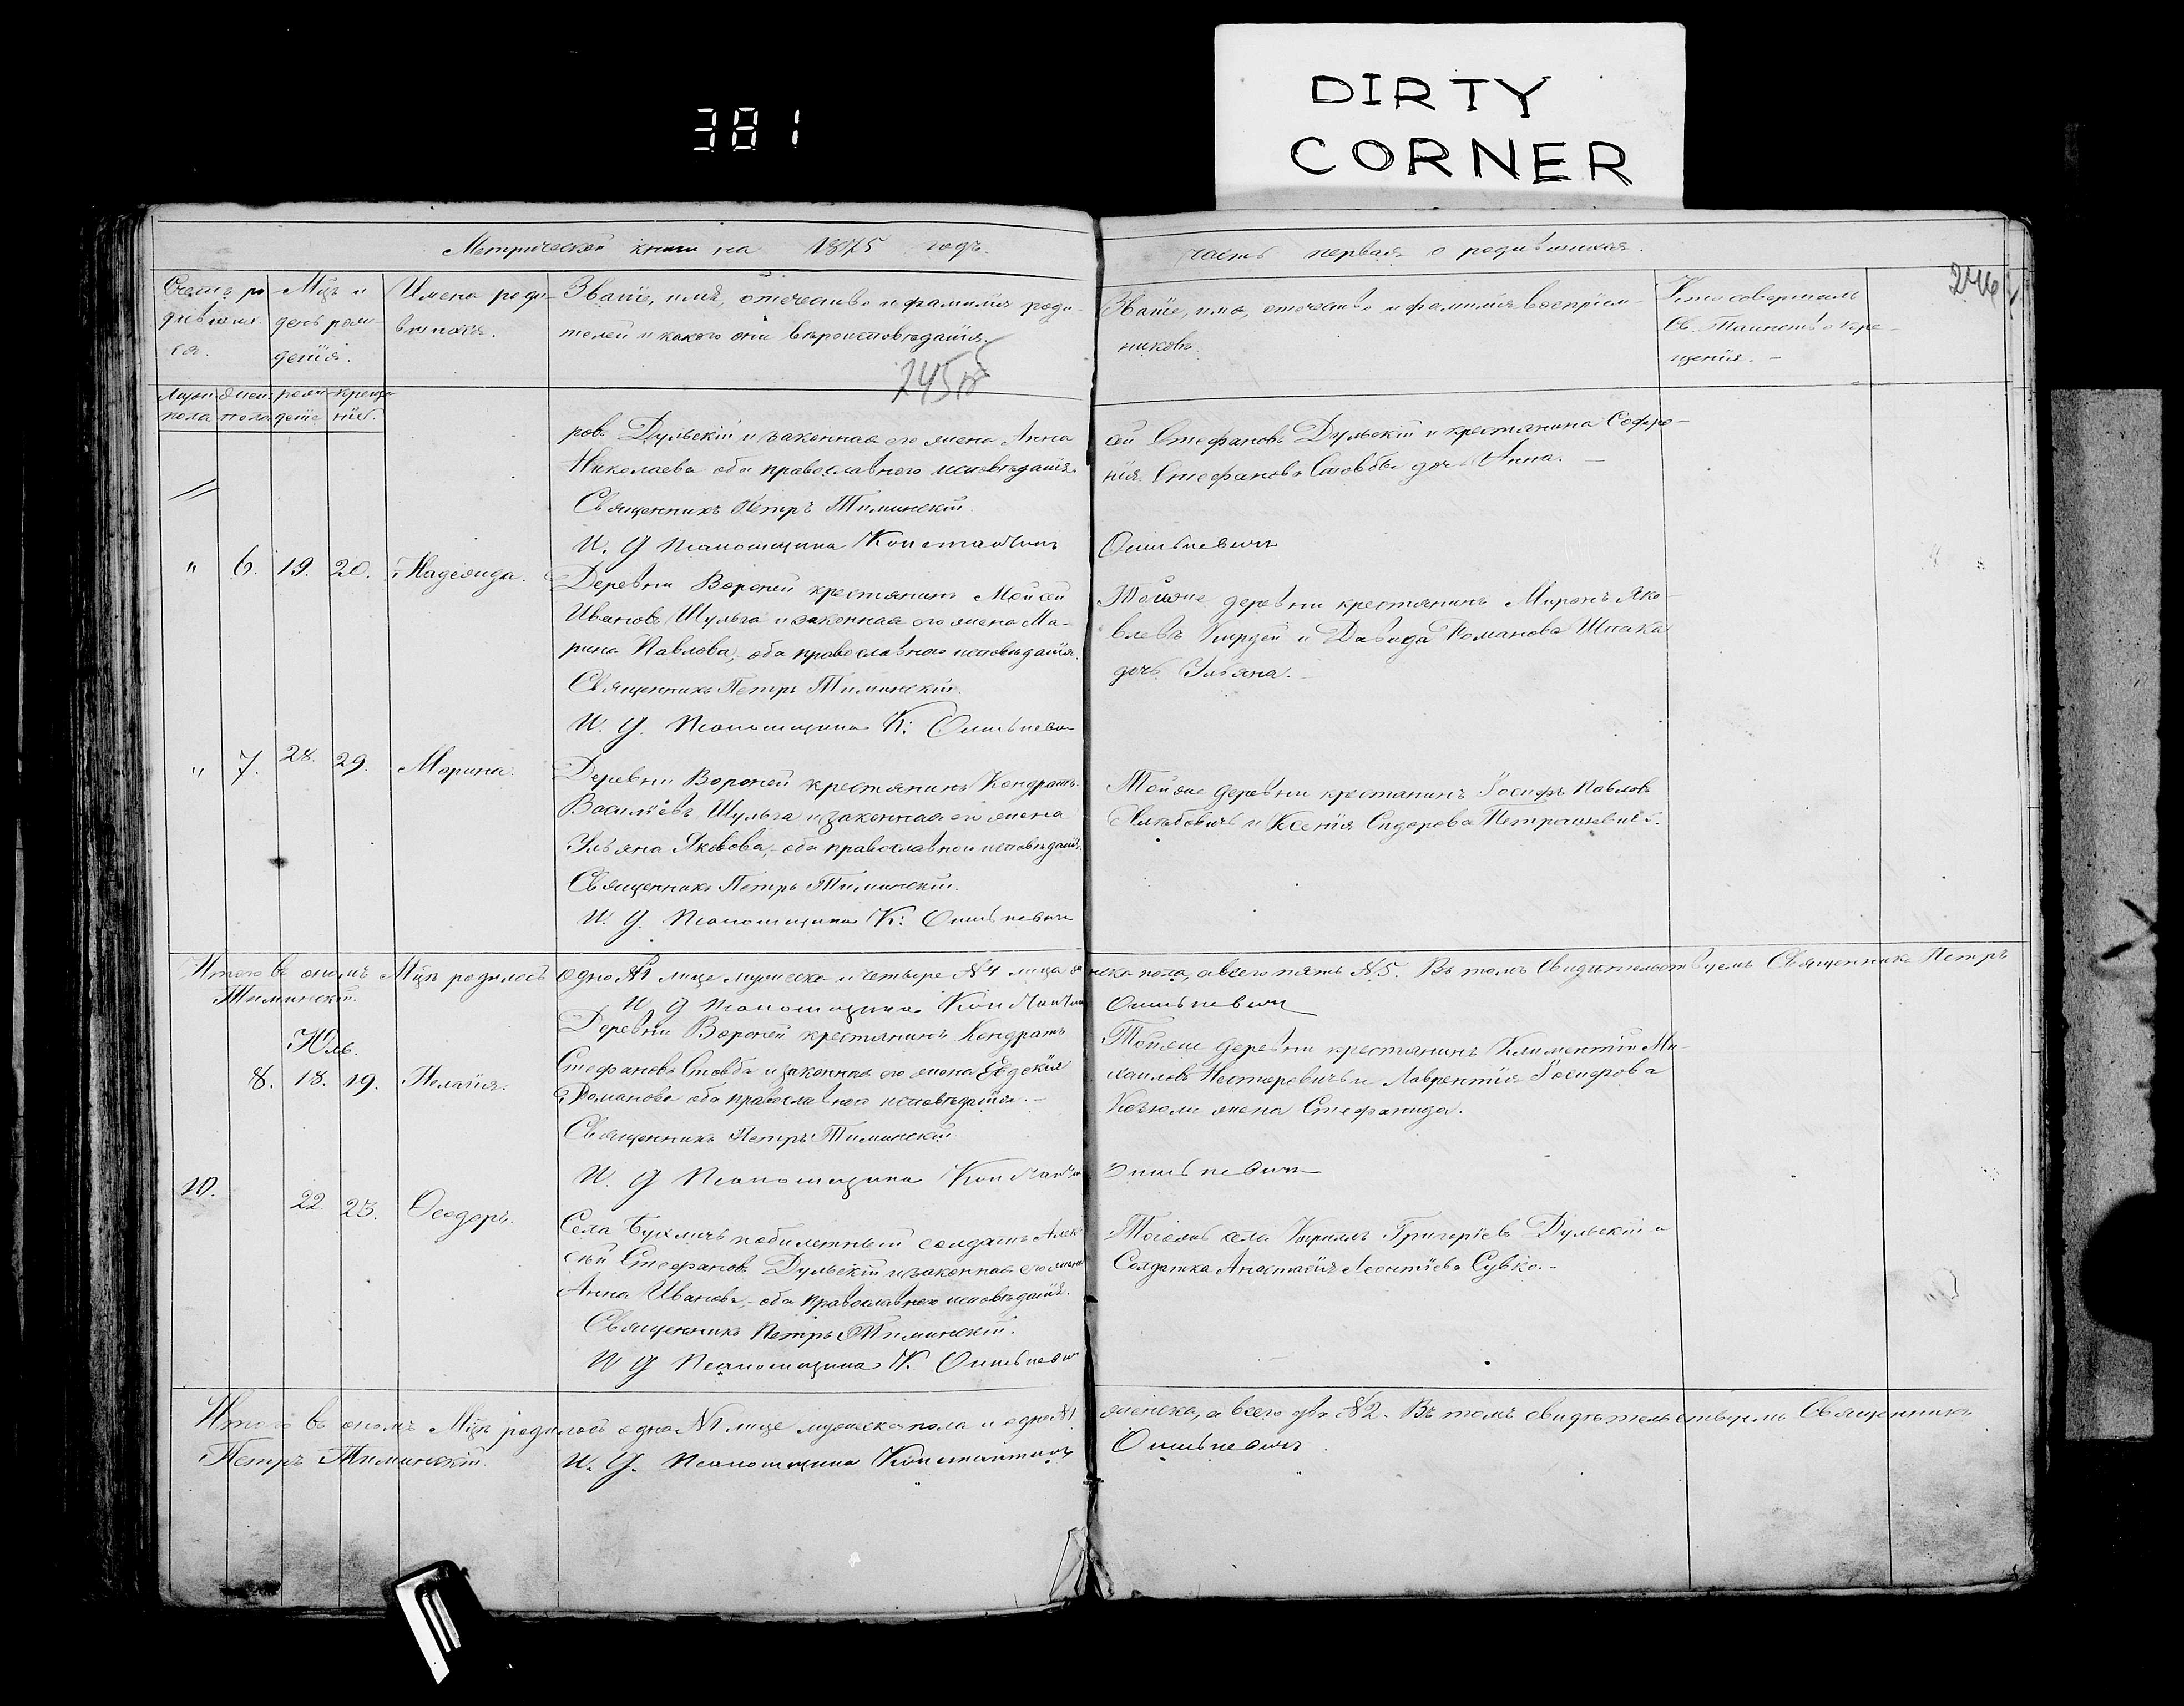 DIRTY
CORNER
381
Метрической книги на 1875 годъ.
часть первая о родившихся.
246
Счетъ ро-
дивших
ся.
Мцъ и
день рож-
денія.
Имена роди-
вшихся.
Званіе, имя, отчество и фамилія роди-
телей и какого они вѣроисповѣданія.
245
Званіе, имя, отчество и фамилія воспріем-
никовъ.
Кто совершалъ
Св. Таинство кре-
щенія. –
Муж. пола
Жен. пола
рож-деніе
креще-ніе.
ровъ Дульскій и законная его жена Анна
Николаева оба православного исповѣданія.
Священникъ Петръ Тиминскій.
И. д Псаломщика Константинъ
сей Стефановъ Дульскій и крестянина Софро-
нія Стефанова Стовбы дочь Анна. –
" 6. 19. 20. Надежда.
Деревни Вороней крестянинъ Мойсей
Ивановъ Шульга и законная его жена Ма-
рина Павлова, – оба православного исповѣданія.
Священникъ Петръ Тиминскій.
И. д. Псаломщика К:
Тойже деревни крестянинъ Миронъ Яко-
влевъ и Давида Романова Шпака
дочь Ульяна. –
" 7. 28. 29. Марина.
Деревни Вороней крестянинъ Кондратъ
Васильевъ Шульга и законная его жена
Ульяна Яковова, – оба православного исповѣданія.
Священникъ Петръ Тиминскій.
И. д. Псаломщика К:
Тойже деревни крестянинъ Іосифъ Павловъ
и Ксенія Сидорова Петрашкевичъ.
Итого въ ономъ Мцѣ родилось одно №1 лице мужеска и четыре №4 лица женска пола, а всего пять №5. Въ томъ свидѣтельствуемъ Священникъ Петръ
Тиминскій.
И д Псаломщика Константинъ
Юль.
8. 18. 19. Пелагія.
Деревни Вороней крестянинъ Кондратъ
Стефановъ Стовба и законная его жена Евдокія
Романова оба православного исповѣданія. –
Священникъ Петръ Тиминскій
И. д Псаломщика Константинъ
Тойже деревни крестянинъ Климентій Ми-
хаиловъ Нестеровичъ и Лаврентія Іосифова
Козюли жена Стефанида.
10. 22. 23. Ѳеодоръ.
Села Бухличъ побилетный солдатъ Алек-
сѣй Стефановъ Дульскій и законная его жена
Анна Иванова, – оба православного исповѣданія.
Священникъ Петръ Тиминскій.
И д Псаломщика К.
Тогожъ села Кириллъ Григорьевъ Дульскій и
Солдатка Анастасія Леонтіева Сувко. –
Итого въ ономъ Мцѣ родилось одно №1 лице мужеска пола и одно №1 женска, а всего два №2. Въ томъ свидѣтельствуемъ Священникъ
Петръ Тиминскій.
И. д. Псаломщика Константинъ